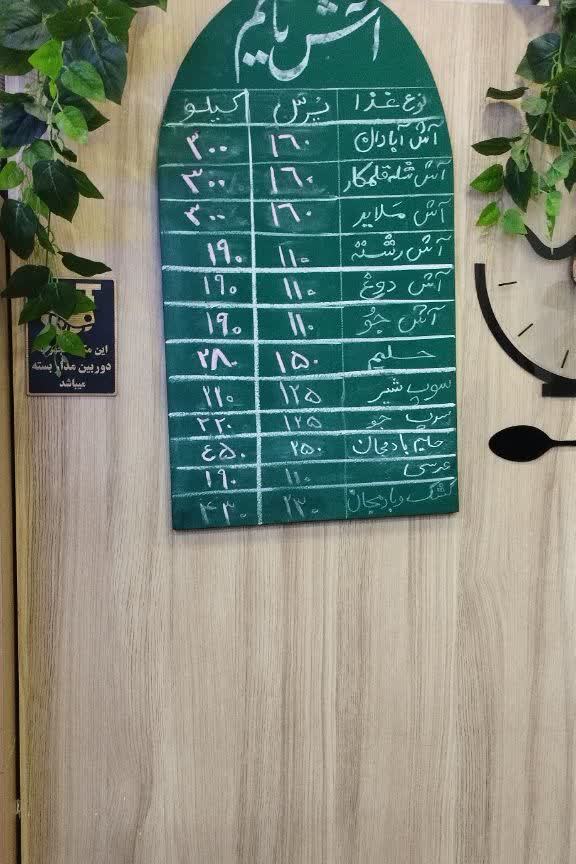 آش یالیم
نوع غذا پرس کیلو
آش آبادان ۱۶۰ ۳۰۰
آش شله قلمکار ۱۶۰ ۳۰۰
آش ملایر ۱۶۰ ۳۰۰
آش رشته ۱۱۰ ۱۹۰
آش دوغ ۱۱۰ ۱۹۰
آش جو ۱۱۰ ۱۹۰
حلیم ۱۵۰ ۲۸۰
سوپ شیر ۱۲۵ ۲۲۰
سوپ جو ۱۲۵ ۲۲۰
حلیم بادمجان ۲۵۰ ۴۵۰
عدسی ۱۱۰ ۱۹۰
کشک و بادمجان ۲۳۰ ۴۳۰
این
دوربین مدار بسته
میباشد